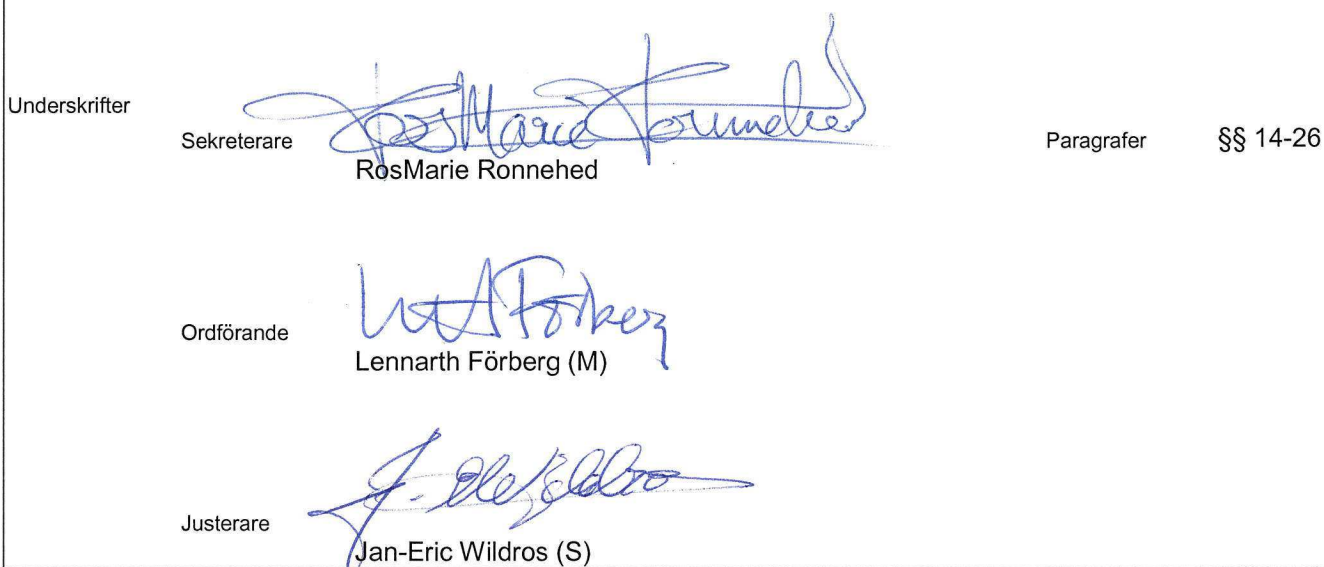 Underskrifter
Sekreterare RosMarie Ronnehed Paragrafer §§ 14-26
RosMarie Ronnehed
Ordförande Förberg
Lennarth Förberg (M)
Justerare
Jan-Eric Wildros (S)